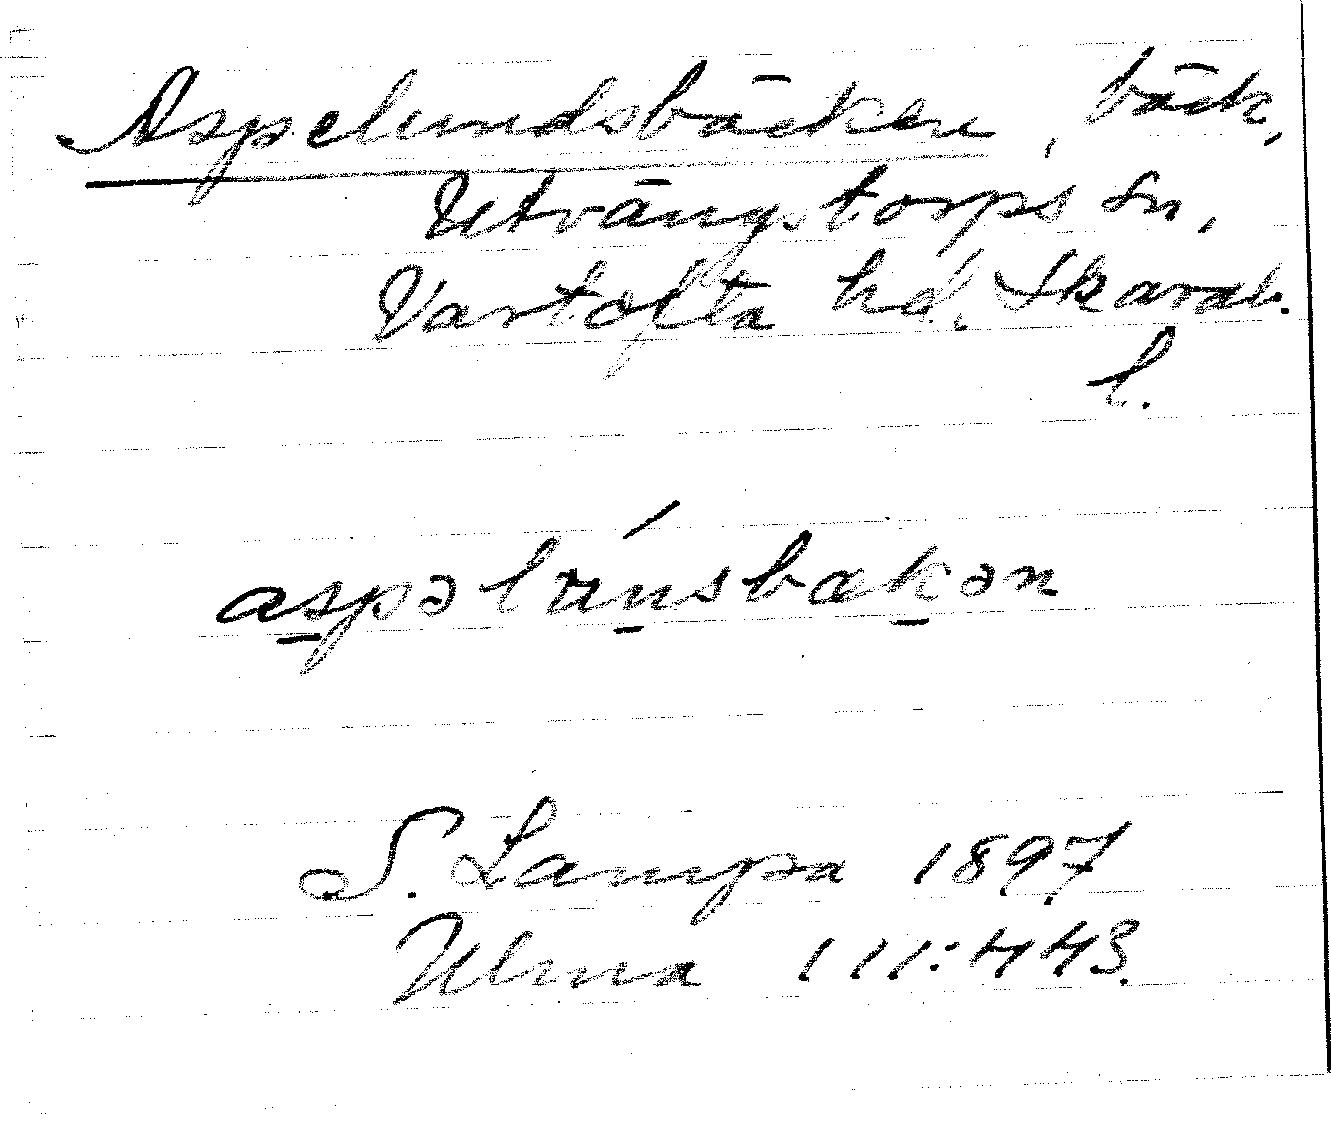 Aspelundsbäcken, bäck,
Utvängstorps sn,
Vartofta hd. Skarab.
l.
aspəlúnsbækən
S. Lampa 1897
Ulma 111:443.